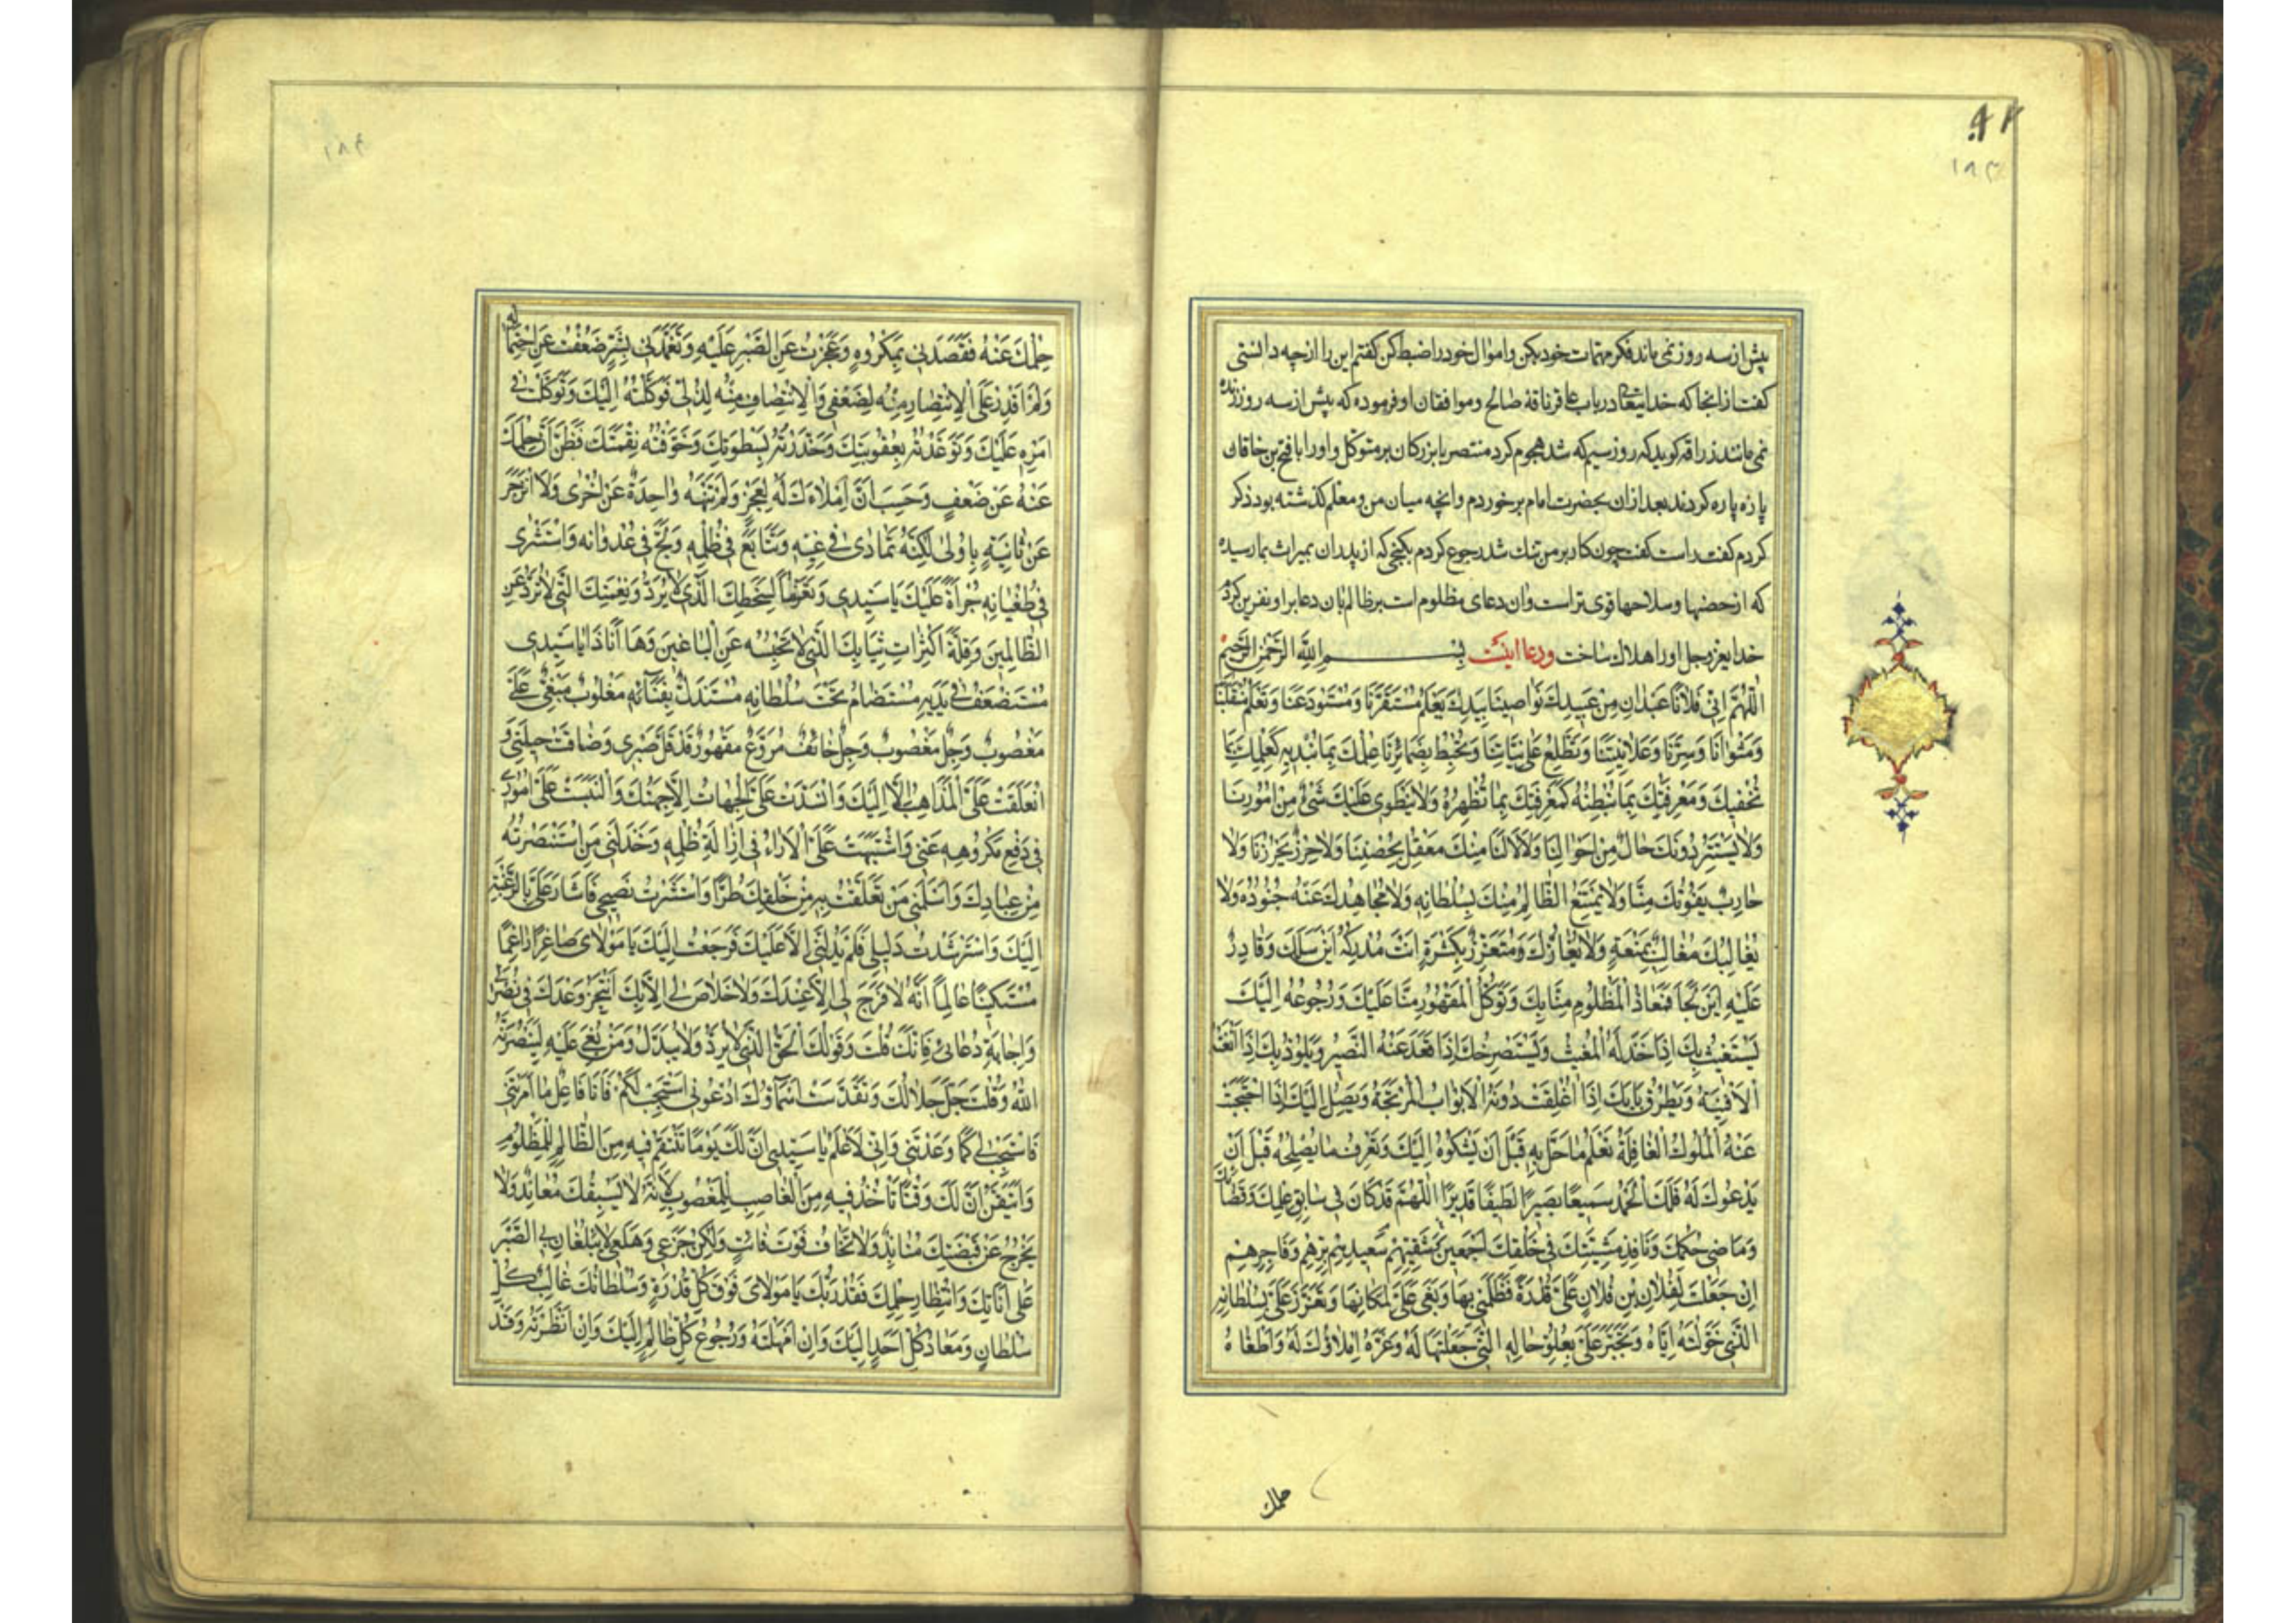 ٩٢
١٨٣
پیش از سه روز نمی ماند فکر مهمات خود بکن و اموال خود را ضبط کن گفتم این را از چه دانستی
گفت از آنجا که خدایتعالی در باب عاقر ناقهٔ صالح و موافقان او فرموده که پیش از سه روز زنده
نمی مانند زرافه گوید که روز سیم که شد هجوم کرد منتصر با بزرکان بر متوکل و اورا با فتح بن خاقان
پاره پاره کردند بعد از ان بحضرت امام برخوردم و انچه میان من و معلم گذشته بود ذکر
کردم گفت راست گفت چون کار بر من تنک شد رجوع کردم بکنجی که از پدران بمیراث بما رسیده
که از حصنها و سلاحها قوی تر است و ان دعای مظلوم است بر ظالم بان دعا بر او نفرین کردم
خدای عز و جل اورا هلاک ساخت و دعا اینست بِسْمِ اللَّهِ الرَّحْمٰنِ الرَّحِيمِ
اَللّٰهُمَّ اِنّى وَفُلاناً عَبْدانِ مِنْ عَبيدِكَ نَواصينا بِيَدِكَ تَعْلَمُ مُسْتَقَرَّنا وَمُسْتَوْدَعَنا وَتَعْلَمُ مُنْقَلَبَنا
وَمَثْوانا وَسِرَّنا وَعَلانِيَتَنا وَتَطَّلِعُ عَلى نِيّاتِنا وَتُحيطُ بِضَمائِرِنا عِلْمُكَ بِما نُبْديهِ كَعِلْمِكَ بِما
نُخْفيهِ وَمَعْرِفَتُكَ بِما نُبْطِنُهُ كَمَعْرِفَتِكَ بِما نُظْهِرُهُ وَلا يَنْطَوى عَلَيْكَ شَىْءٌ مِنْ اُمُورِنا
وَلا يَسْتَتِرُ دُونَكَ حالٌ مِنْ اَحْوالِنا وَلا لَنا مِنْكَ مَعْقِلٌ يُحْصِنُنا وَلا حِرْزٌ يُحْرِزُنا وَلا
هارِبٌ يَفُوتُكَ مِنّا وَلا يَمْتَنِعُ الظّالِمُ مِنْكَ بِسُلْطانِهِ وَلا يُجاهِدُكَ عَنْهُ جُنُودُهُ وَلا
يُغالِبُكَ مُغالِبٌ بِمَنَعَةٍ وَلا يُعازُّكَ مُتَعَزِّزٌ بِكَثْرَةٍ اَنْتَ مُدْرِكُهُ اَيْنَ سَلَكَ وَقادِرٌ
عَلَيْهِ اَيْنَ لَجَاَ فَمَعاذُ الْمَظْلُومِ مِنّا بِكَ وَتَوَكُّلُ الْمَقْهُورِ مِنّا عَلَيْكَ وَرُجُوعُهُ اِلَيْكَ
يَسْتَغيثُ بِكَ اِذا خَذَلَهُ الْمُغيثُ وَيَسْتَصْرِخُكَ اِذا قَعَدَ عَنْهُ النَّصيرُ وَيَلُوذُ بِكَ اِذا نَفَتْهُ
الْاَفْنِيَةُ وَيَطْرُقُ بابَكَ اِذا اُغْلِقَتْ دُونَهُ الْاَبْوابُ الْمُرْتَجَةُ وَيَصِلُ اِلَيْكَ اِذَا احْتَجَبَتْ
عَنْهُ الْمُلُوكُ الْغافِلَةُ تَعْلَمُ ما حَلَّ بِهِ قَبْلَ اَنْ يَشْكُوَهُ اِلَيْكَ وَتَعْرِفُ ما يُصْلِحُهُ قَبْلَ اَنْ
يَدْعُوكَ لَهُ فَلَكَ الْحَمْدُ سَميعاً بَصيراً لَطيفاً قَديراً اَللّٰهُمَّ قَدْ كانَ فى سابِقِ عِلْمِكَ وَقَضائِكَ
وَماضى حُكْمِكَ وَنافِذِ مَشِيَّتِكَ فى خَلْقِكَ اَجْمَعينَ شَقِيِّهِمْ سَعيدِهِمْ بَرِّهِمْ وَفاجِرِهِمْ
اِنْ جَعَلْتَ لِفُلانِ بْنِ فُلانٍ عَلَىَّ قُدْرَةً فَظَلَمَنى بِها وَبَغى عَلَىَّ لِمَكانِها وَتَعَزَّزَ عَلَىَّ بِسُلْطانِهِ
الَّذى خَوَّلْتَهُ اِيّاهُ وَتَجَبَّرَ عَلَىَّ بِعُلُوِّ حالِهِ الَّتى جَعَلْتَها لَهُ وَغَرَّهُ اِمْلاؤُكَ لَهُ وَاَطْغاهُ
حلمك
١٨٤
حِلْمُكَ عَنْهُ فَقَصَدَنى بِمَكْرُوهٍ وَعَجَزْتُ عَنِ الصَّبْرِ عَلَيْهِ وَتَغَمَّدَنى بِشَرٍّ ضَعُفْتُ عَنِ احْتِمالِهِ
وَلَمْ اَقْدِرْ عَلَى الْاِنْتِصارِ مِنْهُ لِضَعْفى وَالْاِنْتِصافِ مِنْهُ لِذُلّى فَوَكَلْتُهُ اِلَيْكَ وَتَوَكَّلْتُ فى
اَمْرِهِ عَلَيْكَ وَتَوَعَّدْتُهُ بِعُقُوبَتِكَ وَحَذَّرْتُهُ بِسَطْوَتِكَ وَخَوَّفْتُهُ نِقْمَتَكَ فَظَنَّ اَنَّ حِلْمَكَ
عَنْهُ عَنْ ضَعْفٍ وَحَسِبَ اَنَّ اِمْلاءَكَ لَهُ لِعَجْزٍ وَلَمْ تَنْهَهُ واحِدَةٌ عَنْ اُخْرى وَلا انْزَجَرَ
عَنْ ثانِيَةٍ بِاُولى لكِنَّهُ تَمادى فى غَيِّهِ وَتَتابَعَ فى ظُلْمِهِ وَلَجَّ فى عُدْوانِهِ وَاسْتَشْرى
فى طُغْيانِهِ جُرْاَةً عَلَيْكَ يا سَيِّدى وَتَعَرُّضاً لِسَخَطِكَ الَّذى لا يُرَدُّ وَنِقْمَتِكَ الَّتى لا تُرَدُّ عَنِ
الظّالِمينَ وَقِلَّةَ اكْتِراثٍ بِبَأْسِكَ الَّذى لا تَحْبِسُهُ عَنِ الْباغينَ وَها اَنَا ذا يا سَيِّدى
مُسْتَضْعَفٌ فى يَدَيْهِ مُسْتَضامٌ تَحْتَ سُلْطانِهِ مُسْتَذَلٌّ بِفِنائِهِ مَغْلُوبٌ مَبْغِىٌّ عَلَىَّ
مَغْصُوبٌ وَجِلٌ مَغْصُوبٌ وَجِلٌ خائِفٌ مُرَوَّعٌ مَقْهُورٌ قَدْ قَلَّ صَبْرى وَضاقَتْ حيلَتى وَ
انْغَلَقَتْ عَلَىَّ الْمَذاهِبُ اِلّا اِلَيْكَ وَانْسَدَّتْ عَلَىَّ الْجِهاتُ اِلّا جِهَتُكَ وَالْتَبَسَتْ عَلَىَّ اُمُورى
فى دَفْعِ مَكْرُوهِهِ عَنّى وَاشْتَبَهَتْ عَلَىَّ الْاراءُ فى اِزالَةِ ظُلْمِهِ وَخَذَلَنى مَنِ اسْتَنْصَرْتُهُ
مِنْ عِبادِكَ وَاَسْلَمَنى مَنْ تَعَلَّقْتُ بِهِ مِنْ خَلْقِكَ طُرّاً وَاسْتَشَرْتُ نَصيحى فَاَشارَ عَلَىَّ بِالرَّغْبَةِ
اِلَيْكَ وَاسْتَرْشَدْتُ دَليلى فَلَمْ يَدُلَّنى اِلّا عَلَيْكَ فَرَجَعْتُ اِلَيْكَ يا مَوْلاىَ صاغِراً راغِماً
مُسْتَكيناً عالِماً اَنَّهُ لا فَرَجَ لى اِلّا عِنْدَكَ وَلا خَلاصَ لى اِلّا بِكَ اَنْتَجِزُ وَعْدَكَ فى نُصْرَتى
وَاِجابَةِ دُعائى فَاِنَّكَ قُلْتَ وَقَوْلُكَ الْحَقُّ الَّذى لا يُرَدُّ وَلا يُبَدَّلُ وَمَنْ بُغِىَ عَلَيْهِ لَيَنْصُرَنَّهُ
اللَّهُ وَقُلْتَ جَلَّ جَلالُكَ وَتَقَدَّسَتْ اَسْماؤُكَ ادْعُونى اَسْتَجِبْ لَكُمْ فَاَنَا فاعِلٌ ما اَمَرْتَنى
فَاسْتَجِبْ لى كَما وَعَدْتَنى وَاِنّى لَاَعْلَمُ يا سَيِّدى اَنَّ لَكَ يَوْماً تَنْتَقِمُ فيهِ مِنَ الظّالِمِ لِلْمَظْلُومِ
وَاَتَيَقَّنُ اَنَّ لَكَ وَقْتاً تَأْخُذُ فيهِ مِنَ الْغاصِبِ لِلْمَغْصُوبِ لِاَنَّهُ لا يَسْبِقُكَ مُعانِدٌ وَلا
يَخْرُجُ عَنْ قَبْضَتِكَ مُنابِذٌ وَلا تَخافُ فَوْتَ فائِتٍ وَلكِنْ جَزَعى وَهَلَعى لا يَبْلُغانِ بِىَ الصَّبْرَ
عَلى اَناتِكَ وَانْتِظارِ حِلْمِكَ فَقُدْرَتُكَ يا مَوْلاىَ فَوْقَ كُلِّ قُدْرَةٍ وَسُلْطانُكَ غالِبُ كُلِّ
سُلْطانٍ وَمَعادُ كُلِّ اَحَدٍ اِلَيْكَ وَاِنْ اَمْهَلْتَهُ وَرُجُوعُ كُلِّ ظالِمٍ اِلَيْكَ وَاِنْ اَنْظَرْتَهُ وَقَدْ